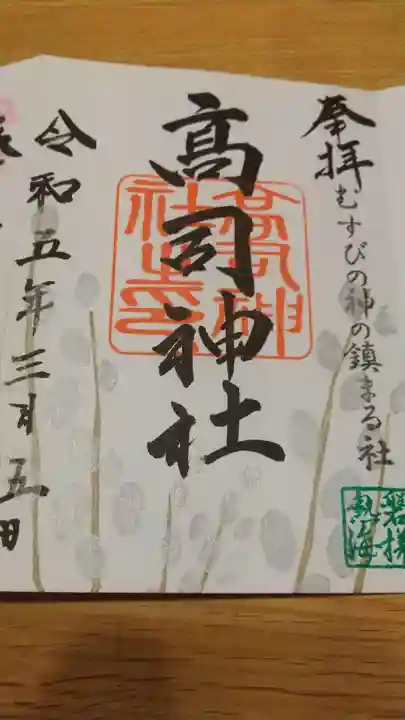 奉拝
むすびの神の鎮まる社
磐梯
熱海
高司神社
高司神
社之印
令和五年三月五日